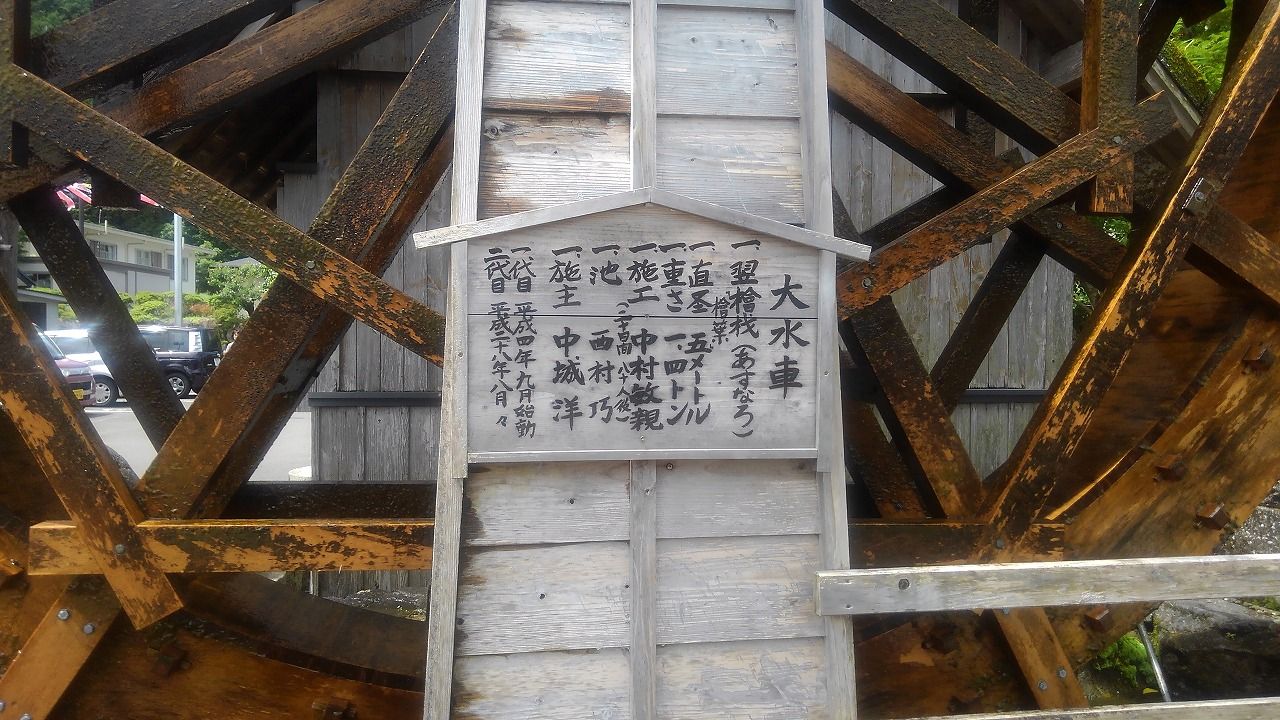 大水車
一、翌檜桟(あすなろ)
檜葉
一、直圣 五メートル
一、重さ 一.四トン
一、施工 中村敏親
一、池 西村巧
一、施主 中城洋
一代目 平成四年九月始動
二代目 平成二十八年八月々